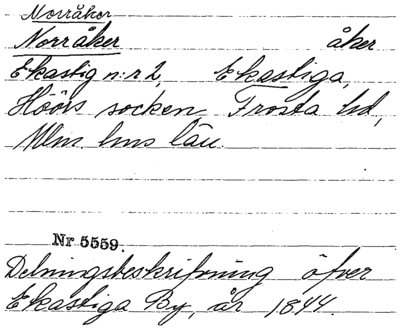 Norråker
Norråker åker
Ekastig n:r 2, Ekastiga,
Höörs socken, Frosta hd,
Mlm hus län.
Nr 5559.
Delningsbeskrifning öfver
Ekastiga By, år 1844.